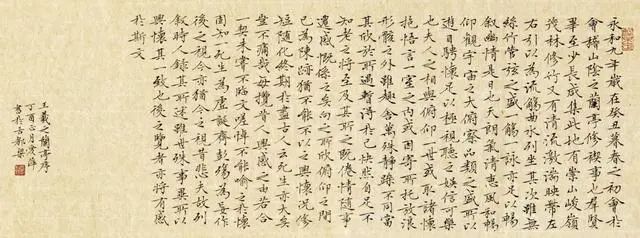 永和九年歲在癸丑暮春之初會於
會稽山陰之蘭亭修禊事也群賢
畢至少長咸集此地有崇山峻嶺
茂林修竹又有清流激湍映帶左
右引以為流觴曲水列坐其次雖無
絲竹管弦之盛一觴一詠亦足以暢
敘幽情是日也天朗氣清惠風和暢
仰觀宇宙之大俯察品類之盛所以
遊目騁懷足以極視聽之娛信可樂
也夫人之相與俯仰一世或取諸懷
抱悟言一室之內或因寄所托放浪
形骸之外雖趣舍萬殊靜躁不同當
其欣於所遇暫得於己快然自足不
知老之將至及其所之既倦情隨事
遷感慨係之矣向之所欣俯仰之間
已為陳跡猶不能不以之興懷況修
短隨化終期於盡古人云死生亦大矣
豈不痛哉每攬昔人興感之由若合
一契未嘗不臨文嗟悼不能喻之於懷
固知一死生為虛誕齊彭殤為妄作
後之視今亦猶今之視昔悲夫故列
敘時人錄其所述雖世殊事異所以
興懷其一致也後之覽者亦將有感
於斯文
王羲之蘭亭序
丁酉六月雲萍
書於古都梁